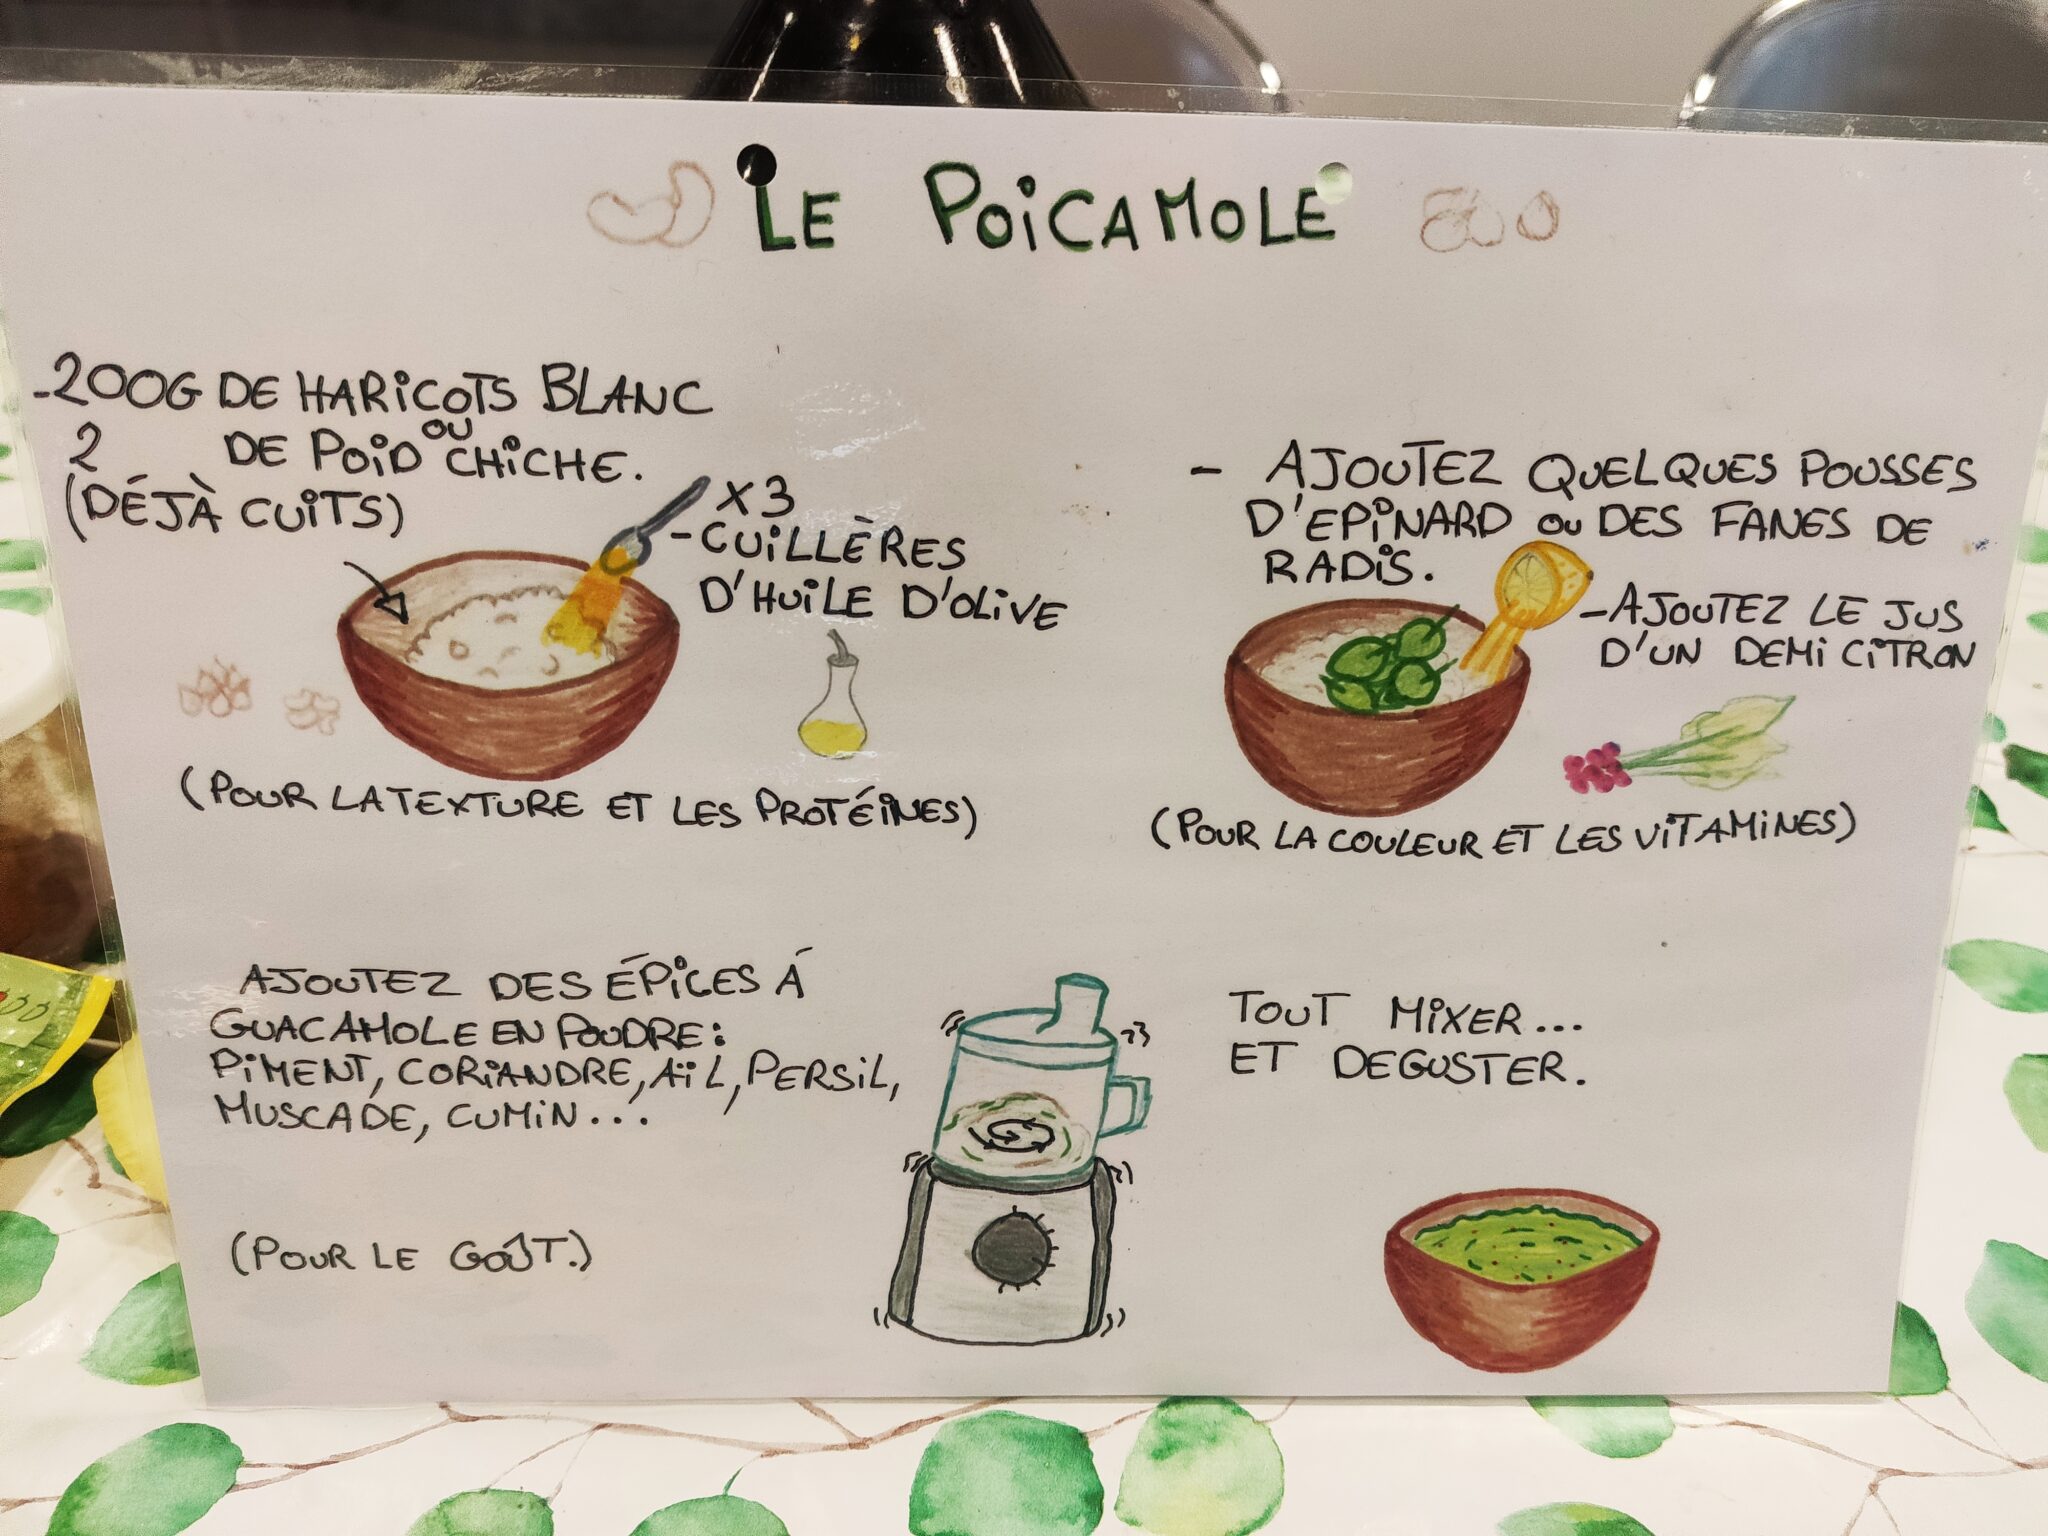 LE POICAMOLE
-200G DE HARICOTS BLANC
OU
2 DE POID CHICHE.
(DÉJÀ CUITS)
X3
-CUILLÈRES
D'HUILE D'OLIVE
(POUR LA TEXTURE ET LES PROTÉINES)
- AJOUTEZ QUELQUES POUSSES
D'EPINARD OU DES FANES DE
RADIS.
-AJOUTEZ LE JUS
D'UN DEMI CITRON
(POUR LA COULEUR ET LES VITAMINES)
AJOUTEZ DES ÉPICES Á
GUACAMOLE EN POUDRE:
PIMENT, CORIANDRE, AïL, PERSIL,
MUSCADE, CUMIN...
(POUR LE GOÛT.)
TOUT MIXER...
ET DEGUSTER.